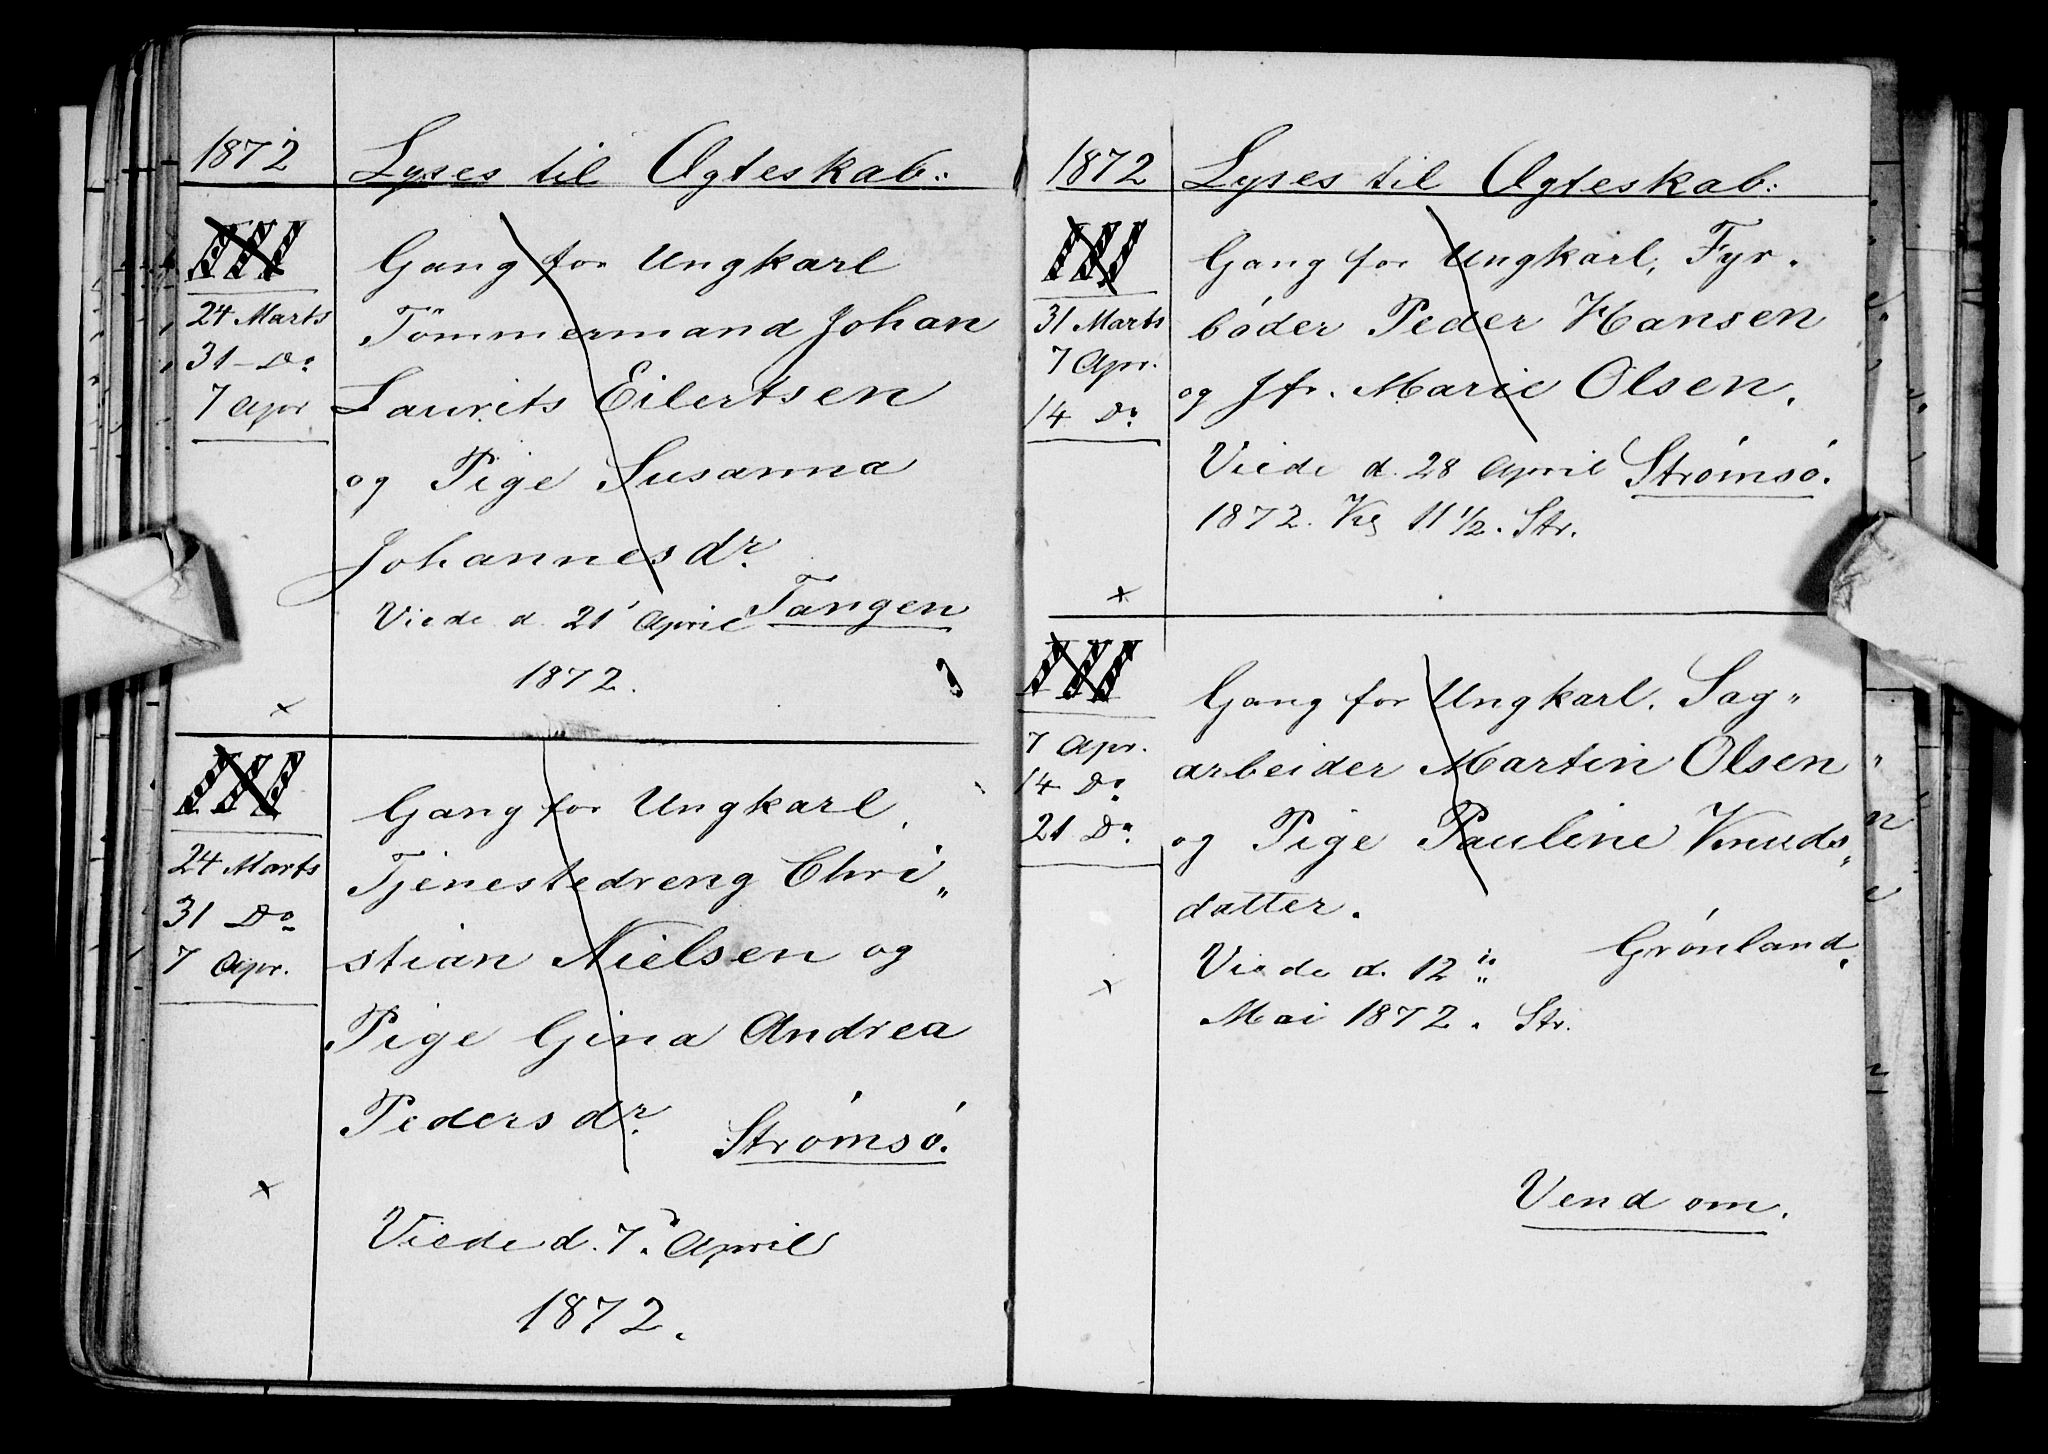 1872
Lyses til Ægteskab:
III
Gang for Ungkarl
24 Marts
Tömmermand Johan
31 - Do
7 Apr
Laurits Eilertsen
og Pige Susanna
Johannesdr.
Viede d. 21 April Tangen
1872.
x
III
Gang for Ungkarl.
24 Marts
Tjenestedreng Chri„
31 Do
stian Nielsen og
7 Apr.
Pige Gina Andrea
Pedersdr.
Strømsó.
x
Viede d. 7. April
1872.
1872
Lyses til Ægteskab:
III
Gang for Ungkarl, Fyr.
31 Marts
bóder Peder Hansen
7 Apr.
og Jfr. Marie Olsen.
14 Do
Viede d. 28 April Strømsó.
1872. Kl 11 1/2. Str.
x
III
Gang for Ungkarl. Sag„
7 Apr.
arbeider Martin Olsen
14 Do
21 Do
og Pige Pauline Knuds„
datter.
Grónland.
Viede d. 12
x
Mai 1872. Str.
Vend om.